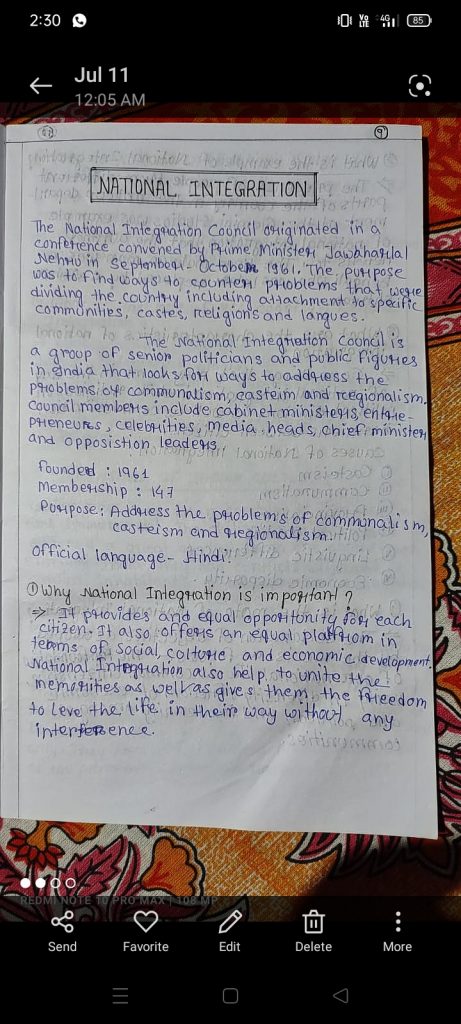 2:30
Vo
LTE
4G
85
Jul 11
12:05 AM
9
NATIONAL INTEGRATION
The National Integration Council originated in a
conference convened by Prime Minister Jawaharlal
Nehru in September - October 1961. The purpose
was to find ways to counter problems that were
dividing the country including attachment to specific
communities, castes, religions and langues.
The National Integration Council is
a group of senior politicians and public figures
in India that looks for ways to address the
problems of communalism, casteim and reegionalism.
Council members include cabinet ministers, entre-
preneures, celebrities, media heads, chief minister
and opposistion leaders.
Founded : 1961
Membership : 147
Purpose: Address the problems of communalism,
casteism and regionalism.
Official language - Hindi.
① Why National Integration is important ?
⇒ It provides and equal opportunity for each
citizen. It also offers an equal platfrom in
teams of social culture and economic development.
National Integration also help to unite the
memorities as well as gives them the freedom
to leve the life in their way without any
interfence.
REDMI NOTE 10 PRO MAX | 108 MP
Send
Favorite
Edit
Delete
More